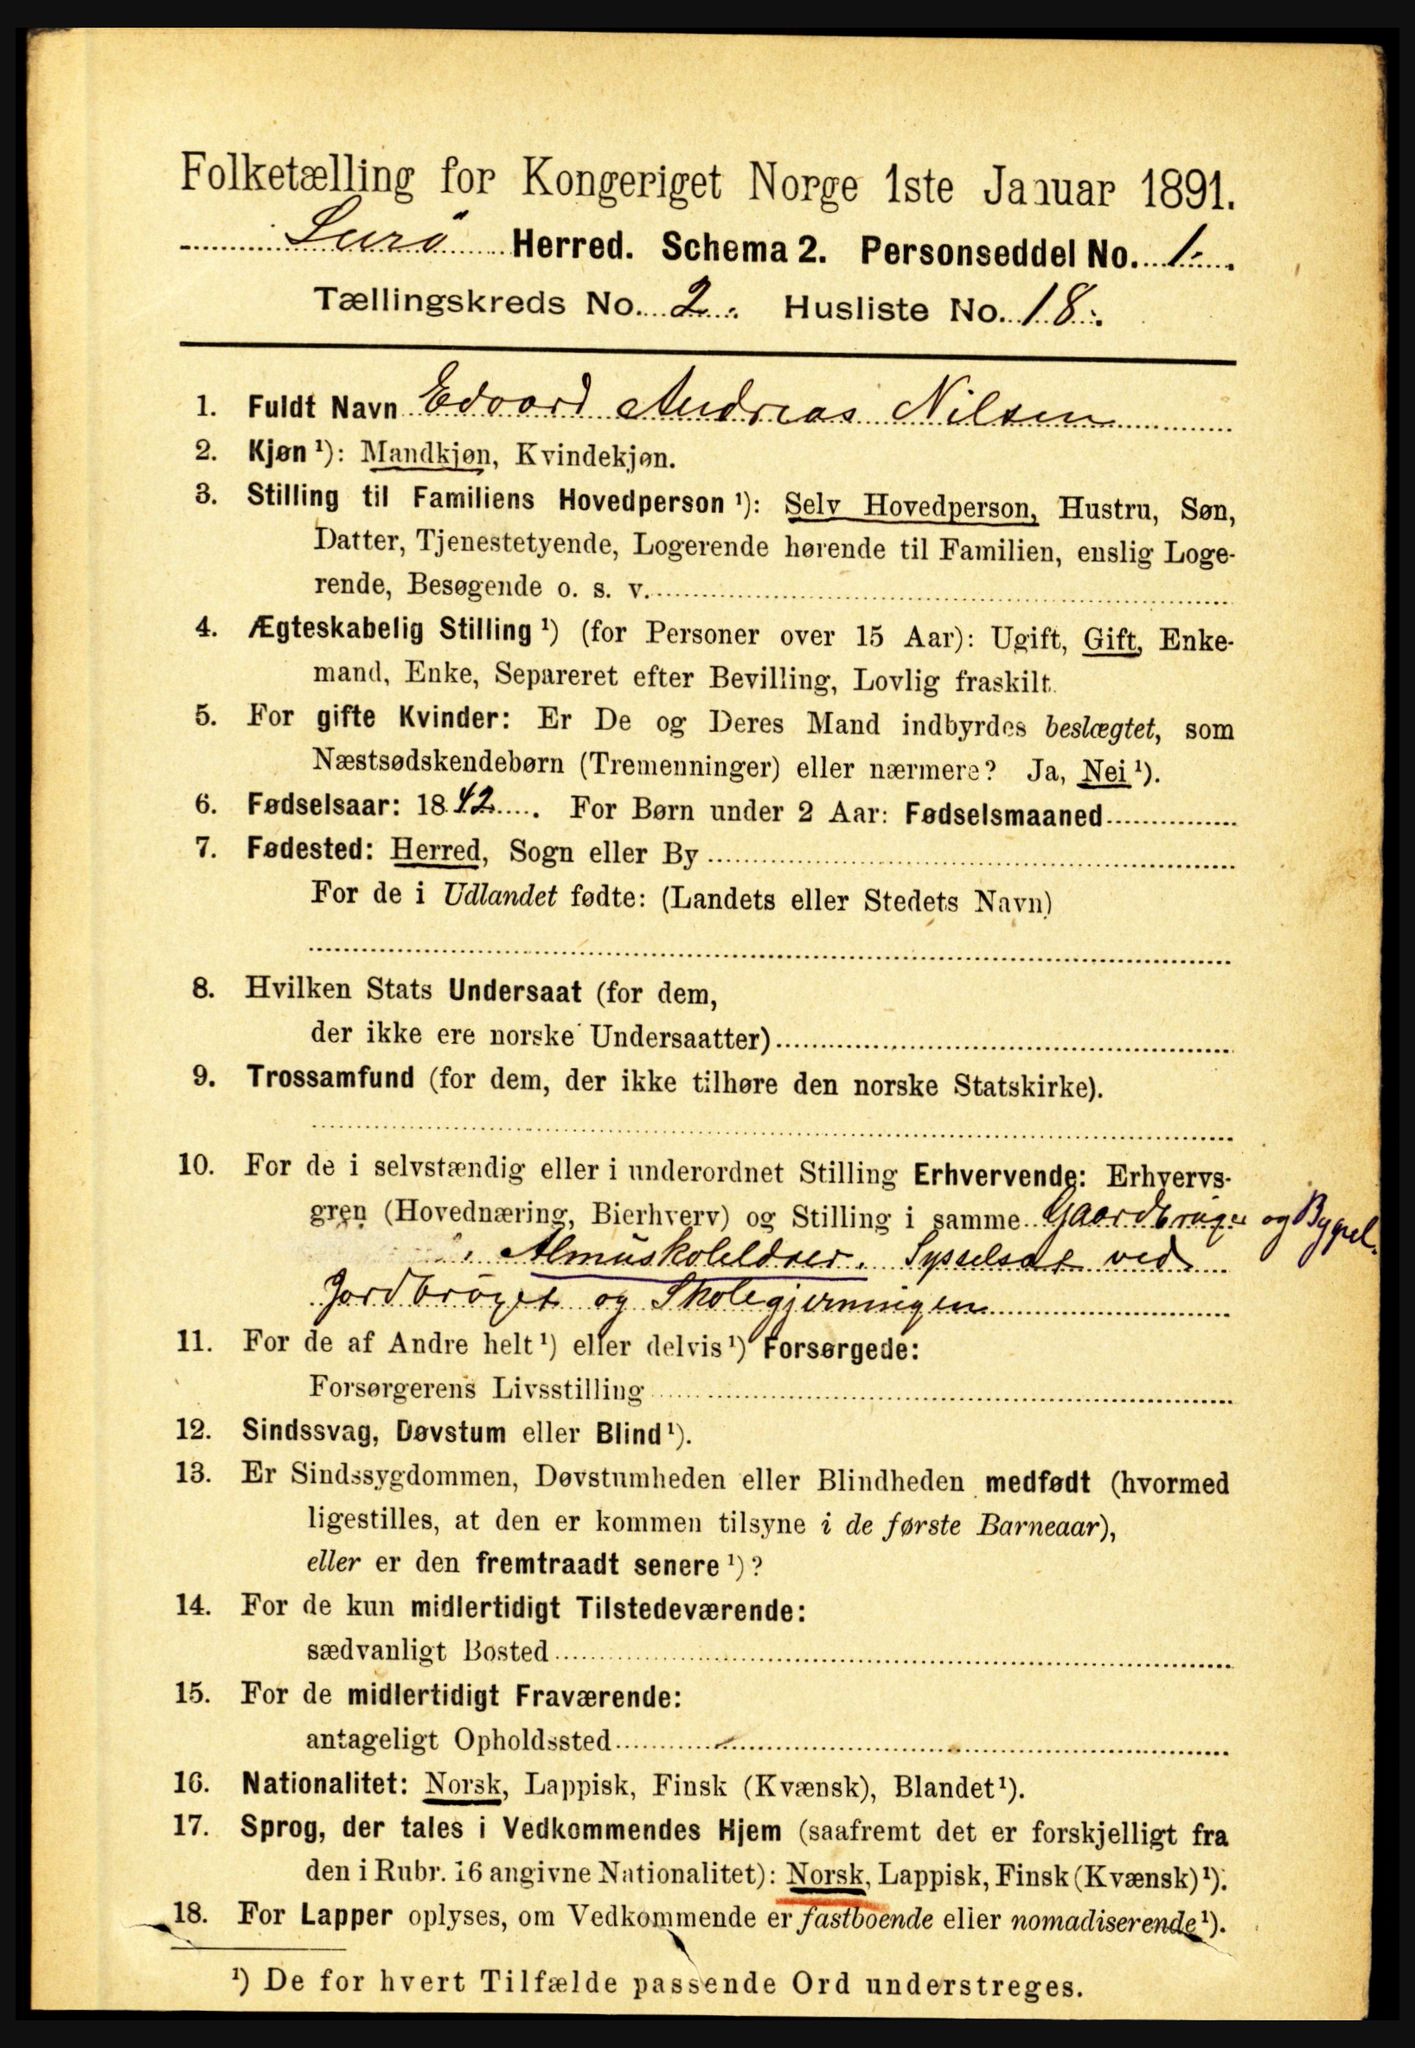 Folketælling for Kongeriget Norge 1ste Januar 1891.
Lurö Herred. Schema 2. Personseddel No. 1.
Tællingskreds No. 2. Husliste No. 18.
1. Fuldt Navn Edvard Andreas Nilsen
2. Kjøn ¹): Mandkjøn, Kvindekjøn.
3. Stilling til Familiens Hovedperson ¹): Selv Hovedperson, Hustru, Søn,
Datter, Tjenestetyende, Logerende hørende til Familien, enslig Loge-
rende, Besøgende o. s. v.
4. Ægteskabelig Stilling ¹) (for Personer over 15 Aar): Ugift, Gift, Enke-
mand, Enke, Separeret efter Bevilling, Lovlig fraskilt.
5. For gifte Kvinder: Er De og Deres Mand indbyrdes beslægtet, som
Næstsødskendebørn (Tremenninger) eller nærmere? Ja, Nei ¹).
6. Fødselsaar: 1842. For Børn under 2 Aar: Fødselsmaaned
7. Fødested: Herred, Sogn eller By
For de i Udlandet fødte: (Landets eller Stedets Navn)
8. Hvilken Stats Undersaat (for dem,
der ikke ere norske Undersaatter)
9. Trossamfund (for dem, der ikke tilhøre den norske Statskirke).
10. For de i selvstændig eller i underordnet Stilling Erhvervende: Erhvervs-
gren (Hovednæring, Bierhverv) og Stilling i samme Gaardbruger og Bygsel.
Almuskolelærer. Sysselsat ved
Jordbruget og Skolegjerningen
11. For de af Andre helt ¹) eller delvis ¹) Forsørgede:
Forsørgerens Livsstilling
12. Sindssvag, Døvstum eller Blind ¹).
13. Er Sindssygdommen, Døvstumheden eller Blindheden medfødt (hvormed
ligestilles, at den er kommen tilsyne i de første Barneaar),
eller er den fremtraadt senere ¹)?
14. For de kun midlertidigt Tilstedeværende:
sædvanligt Bosted
15. For de midlertidigt Fraværende:
antageligt Opholdssted
16. Nationalitet: Norsk, Lappisk, Finsk (Kvænsk), Blandet ¹).
17. Sprog, der tales i Vedkommendes Hjem (saafremt det er forskjelligt fra
den i Rubr. 16 angivne Nationalitet): Norsk, Lappisk, Finsk (Kvænsk) ¹).
18. For Lapper oplyses, om Vedkommende er fastboende eller nomadiserende ¹).
¹) De for hvert Tilfælde passende Ord understreges.